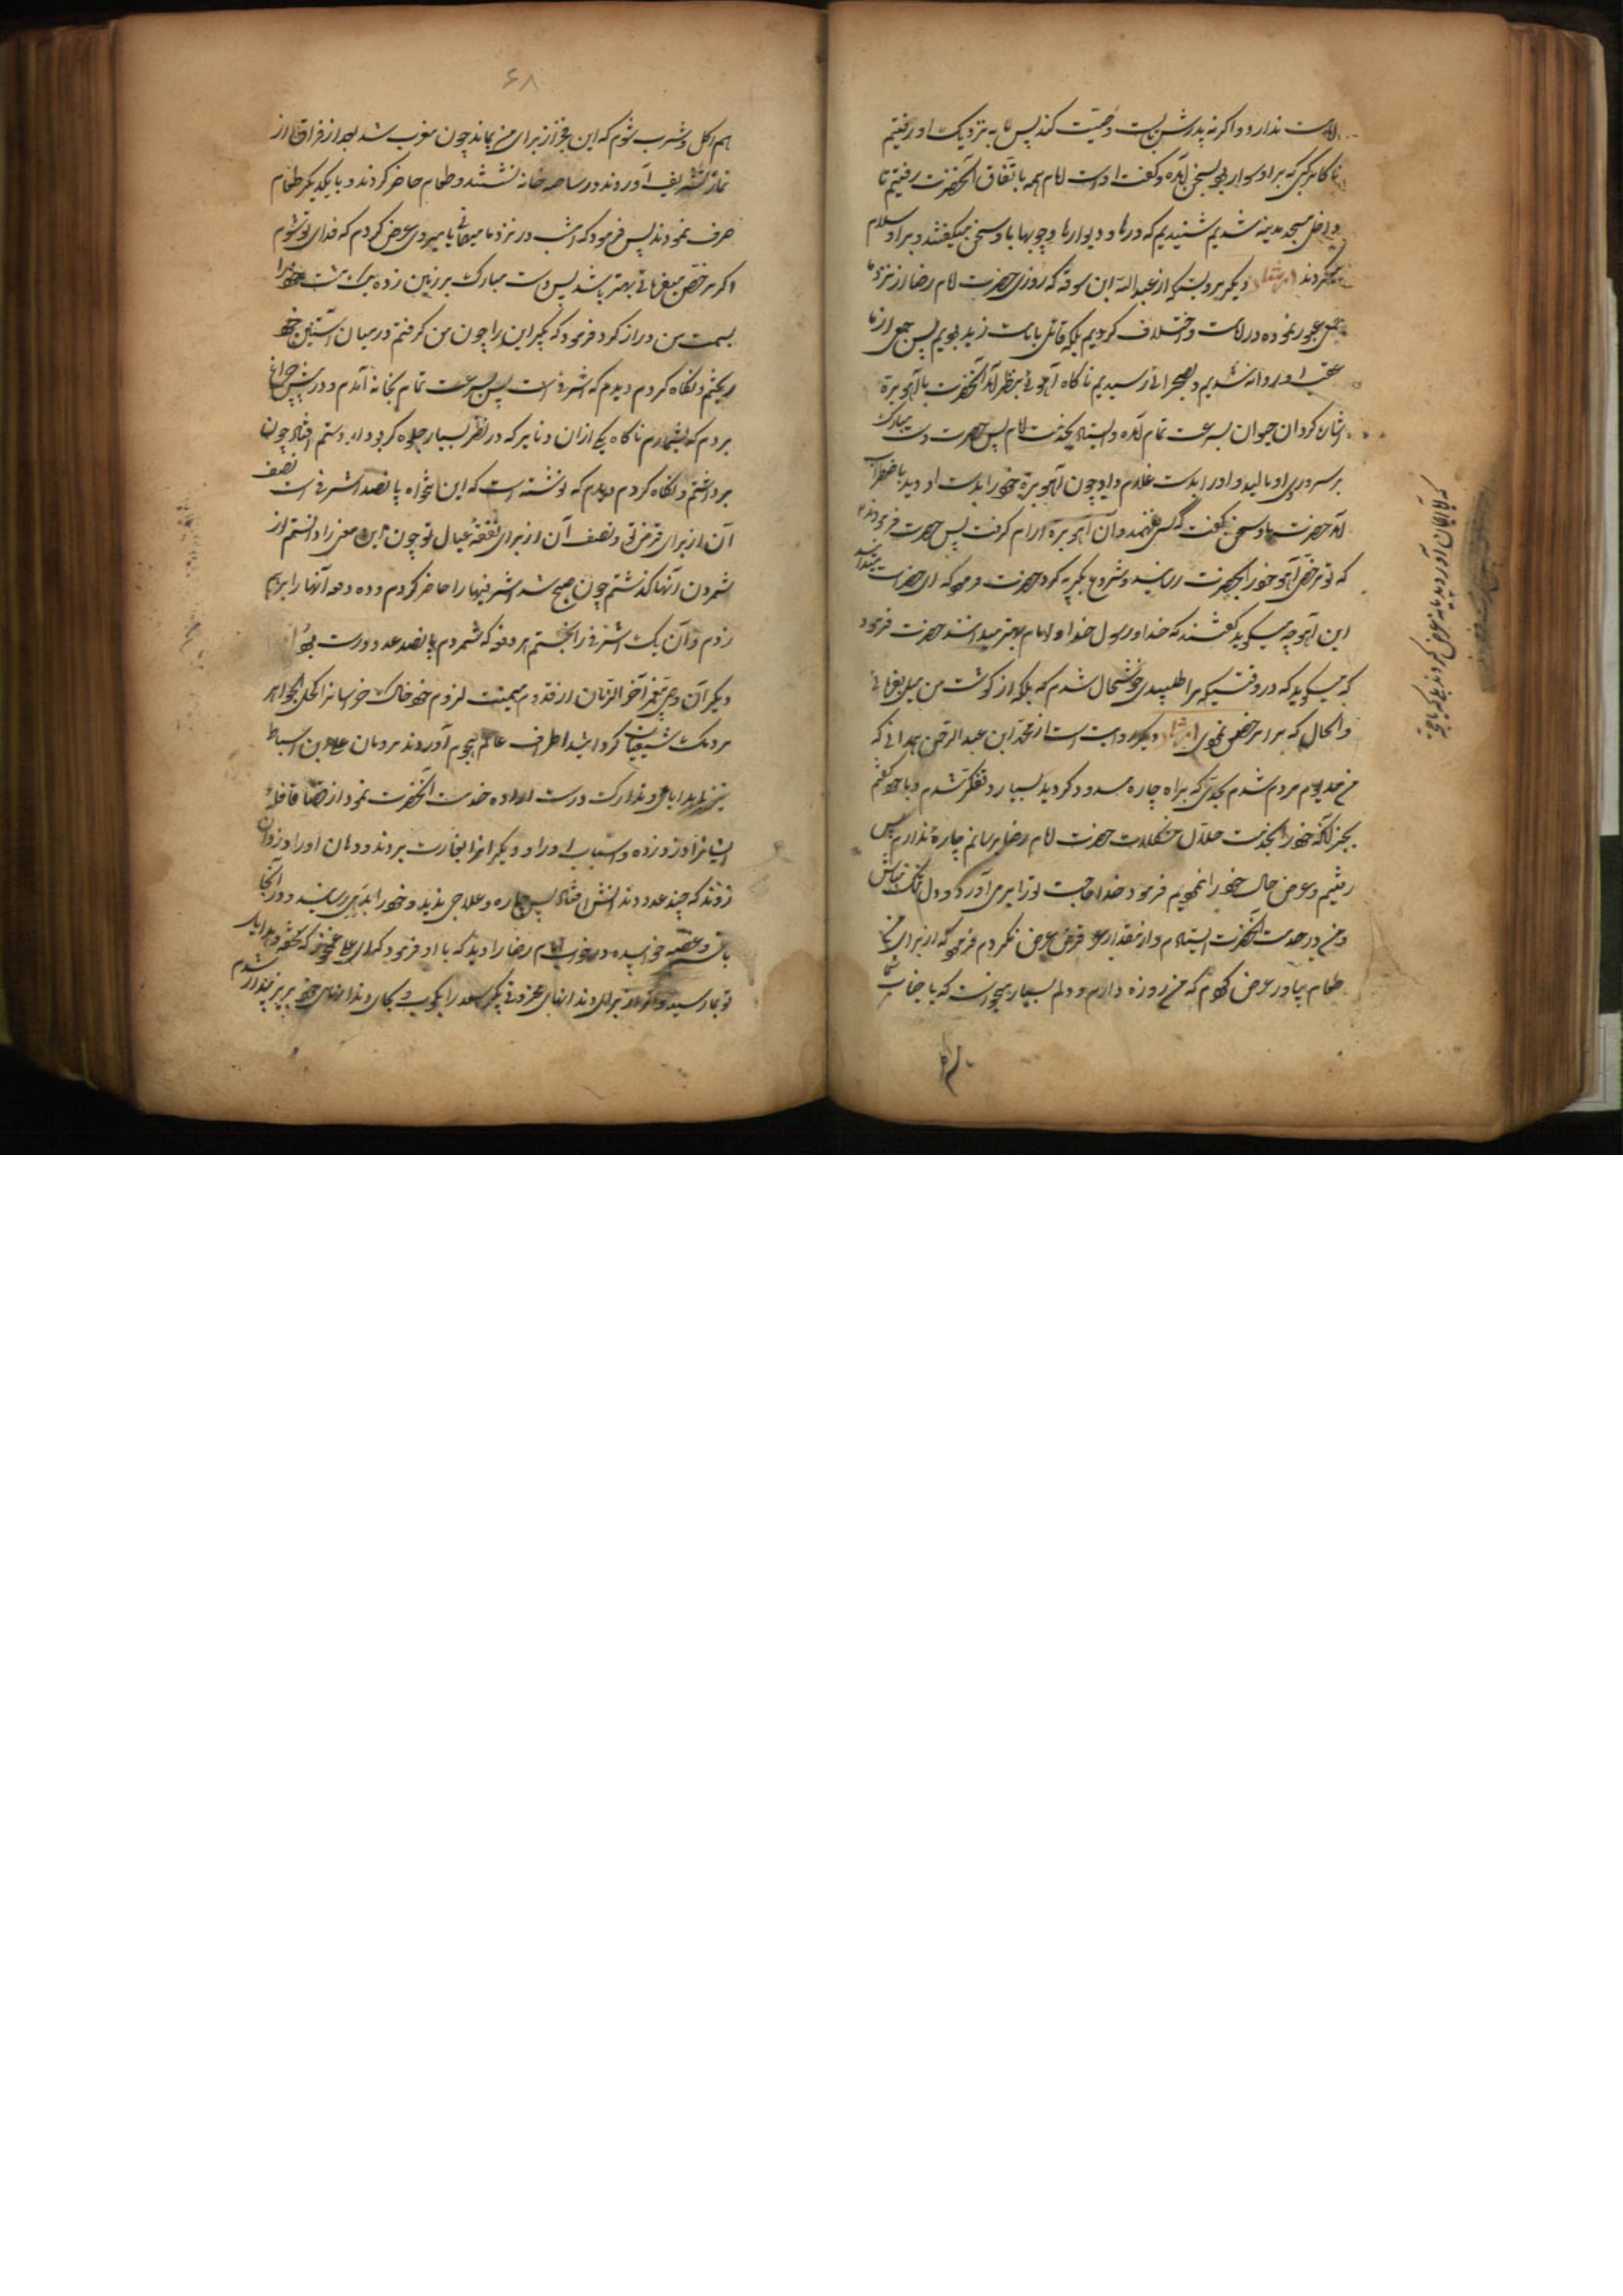 امامت ندارد و اگر نه پدرش بایست وصیت کند پس ما به نزدیک او رفتیم
ناگاه مرکبی که بر او سوار بود بسخن آمده و گفت اوست امام همه باتفاق آنحضرت رفتیم تا
داخل مسجد مدینه شدیم شنیدیم که درها و دیوارها و چوبها با او سخن میگفتند و بر او سلام
میکردند ایضا دیگر مرویست از عبدالله ابن سوقه که روزی حضرت امام رضا از نزد ما
عبور نموده در امامت و اختلاف کردیم بلکه قائل بامامت زید بودیم پس جمعی از ما
عقب او روانه شدیم و بصحرائی رسیدیم ناگاه آهوئی بنظر آمد آنحضرت با آهو بره
اشاره کرد آن حیوان بسرعت تمام آمده و ایستاد بخدمت امام پس حضرت دست مبارک
بر سر و روی او مالید و او را بدست غلام داد چون آهو بره خود را بدست او دید باضطراب
آمد حضرت باو سخن گفت که کسی نفهمید و آن آهو بره آرام گرفت پس حضرت فرمودند
که تو مرخصی آهو خود را بحضرت رسانید و شروع بگریه کرد حضرت فرمود که ای حضرات میدانید
این آهو چه میگوید گفتند که خدا و رسول خدا و امام بهتر میدانند حضرت فرمود
که میگوید که در وقتیکه مرا طلبیدی خوشحال شدم که بلکه از گوشت من میل بفرمائی
والحال که مرا مرخص نمودی ایضا دیگر روایت است از محمد ابن عبدالرحمن همدانی که
من مدیون مردم شدم بحدی که براه چاره مسدود گردید بسیار متفکر شدم و با خود گفتم
بجز آنکه خود را بخدمت حلال مشکلات حضرت امام رضا برسانم چاره ندارم پس
رفتیم و عرض حال خود را نمودیم فرمود خدا حاجت تو را برمی آورد و دل تنگ مباش
و من در خدمت آنحضرت ایستادم و از مقدار قرض عرض نکردم فرمود که از برای من
طعام بیاور عرض کردم که من روزه دارم و دلم بسیار میخواست که با جناب شما
۶۸
هم اکل و شرب شوم که این فخر از برای من بماند چون مغرب شد بعد از فراق از
نماز تشریف آوردند در ساحه خانه نشستند و طعام حاضر کردند و با یکدیگر طعام
صرف نمودند پس فرمود که امشب در نزد ما میمانی یا میروی عرض کردم که فدای تو شوم
اگر مرخص بفرمائی بهتر باشد پس دست مبارک بر زمین زده مشت خود را
بسمت من دراز کرد فرمود که بگیر این را چون من گرفتم در میان آستین خود
ریختم و نگاه کردم دیدم که اشرفی است پس بسرعت تمام بخانه آمدم و در پیش چراغ
بردم که بشمارم ناگاه یکی از آن دنانیر که در نظر بسیار جلوه کر بود بدستم افتاد چون
برداشتم و نگاه کردم دیدم که نوشته است که این تنخواه پانصد اشرفی است نصف
آن از برای قرض تو و نصف آن از برای نفقهٔ عیال تو چون این معنی را دانستم از
شمردن آنها گذشتم چون صبح شد اشرفیها را حاضر کردم و ده دفعه آنها را برهم
زدم و آن یک اشرفی را نجستم هر دفعه که شمردم پانصد عدد درست بود
دیگر آن وصی پیغمبر آخر الزمان از قدوم میمنت لزوم خود خاک خراسانرا کحل الجواهر
مردمک شیعیان کردانید از اطراف عالم هجوم آوردند مردمان علی بن اسباط
نیز هدایائی تدارک درست اراده خدمت آنحضرت نمود از قضا قافلهٔ
ایشانرا دزد زده و اسباب او را و دیگرانرا بغارت بردند و دهان او را دزدان
زدند که چند عدد دندانش افتاد پس چاره و علاجی ندید و خود را بدهی رسانید و در آنجا
با غصه خوابیده در خواب امام رضا را دید که باو فرمود که ای علی غم مخور که تحفه و هدایای
تو بما رسید و اما از برای دندانهای محزونی بگیر سعد را بکوب و بجای دندانهای خود بریز بیدار شدم